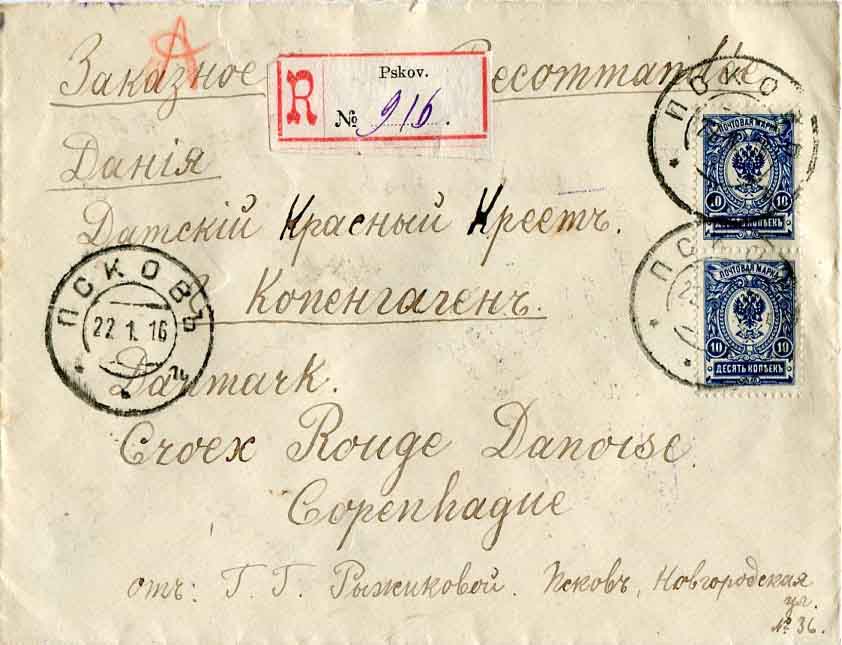 Заказное Recommandée
R Pskov.
№ 916.
Данія
Датскій Красный Крестъ.
Копенгагенъ.
Danmark.
Croex Rouge Danoise
Copenhague
отъ: Г. Г. Рыжиковой. Псковъ, Новгородская
ул.
№ 36.
ПСКОВЪ
22.1.16
ПСКОВЪ
ПОЧТОВАЯ МАРКА
10 10
ПСКОВЪ
ПОЧТОВАЯ МАРКА
10 10
ДЕСЯТЬ КОПѢЕКЪ